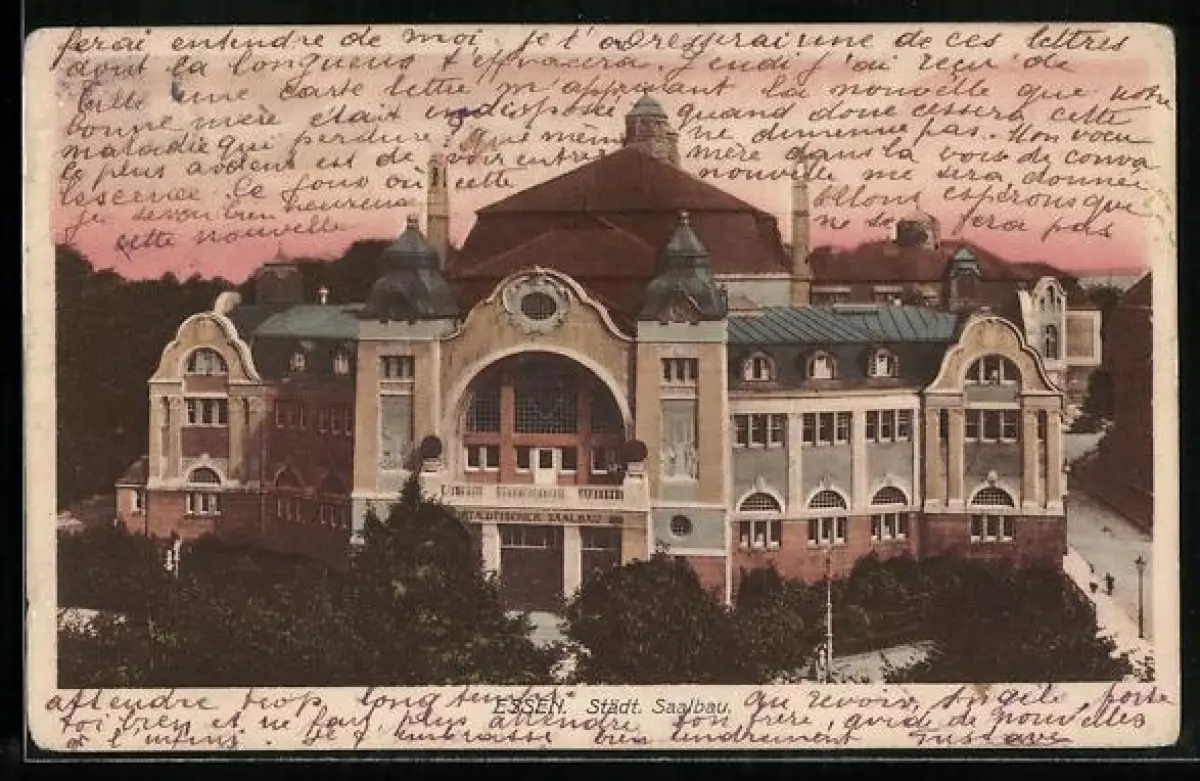 ferai entendre de moi. je t'adresserai une de ces lettres
dont la longueur t'effraera. Jeudi j'ai reçu de
Lille une carte lettre m'apprenant la nouvelle que notre
bonne mère était indisposée quand donc cessera cette
maladie qui perdure, que même ne diminue pas. Mon voeu
le plus ardent est de voir entre mère dans la voie de conva
lescence le jour où cette nouvelle me sera donnée
je serai bien heureux Allons espérons que
cette nouvelle ne se fera pas
STÄDTISCHER SAALBAU
attendre trop longtemps au revoir, Angèle, porte
ESSEN. Städt. Saalbau.
toi bien et ne fais plus attendre ton frère, avide de nouvelles
à l'infini. Je t'embrasse bien tendrement Gustave